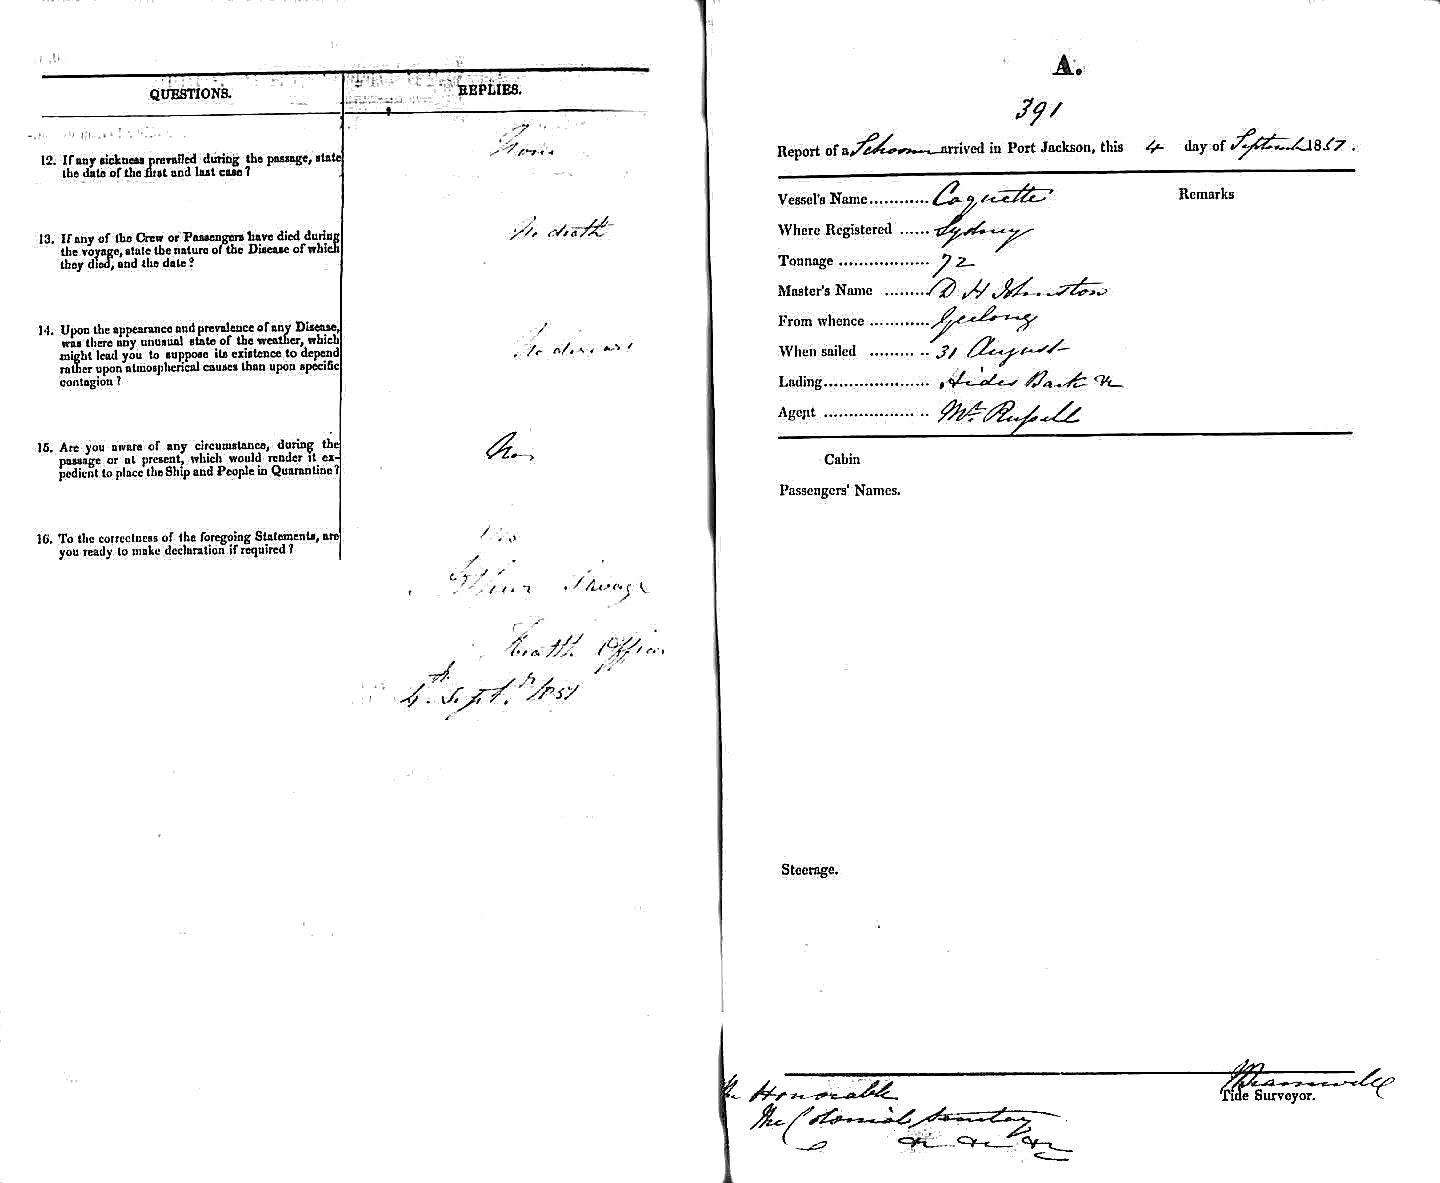 QUESTIONS.
REPLIES.
12. If any sickness prevailed during the passage, state
the date of the first and last case?
None
13. If any of the Crew or Passengers have died during
the voyage, state the nature of the Disease of which
they died, and the date?
No death
14. Upon the appearance and prevalence of any Disease,
was there any unusual state of the weather, which
might lead you to suppose its existence to depend
rather upon atmospherical causes than upon specific
contagion?
No disease
15. Are you aware of any circumstance, during the
passage or at present, which would render it ex-
pedient to place the Ship and People in Quarantine?
16. To the correctness of the foregoing Statements, are
you ready to make declaration if required?
Yes
Arthur Savage
Health Officer
4th Septr. 1851
A.
391
Report of a Schooner arrived in Port Jackson, this 4 day of September 1851.
Vessel's Name............ Coquette
Remarks
Where Registered ...... Sydney
Tonnage .................. 72
Master's Name ......... D H Johnston
From whence ............ Geelong
When sailed ......... .. 31 August
Lading...................... Hides Bark &c
Agent .................. .. Mr. Russell
Cabin
Passengers' Names.
Steerage.
The Honorable
The Colonial Secretary
&c &c &c
Tide Surveyor.